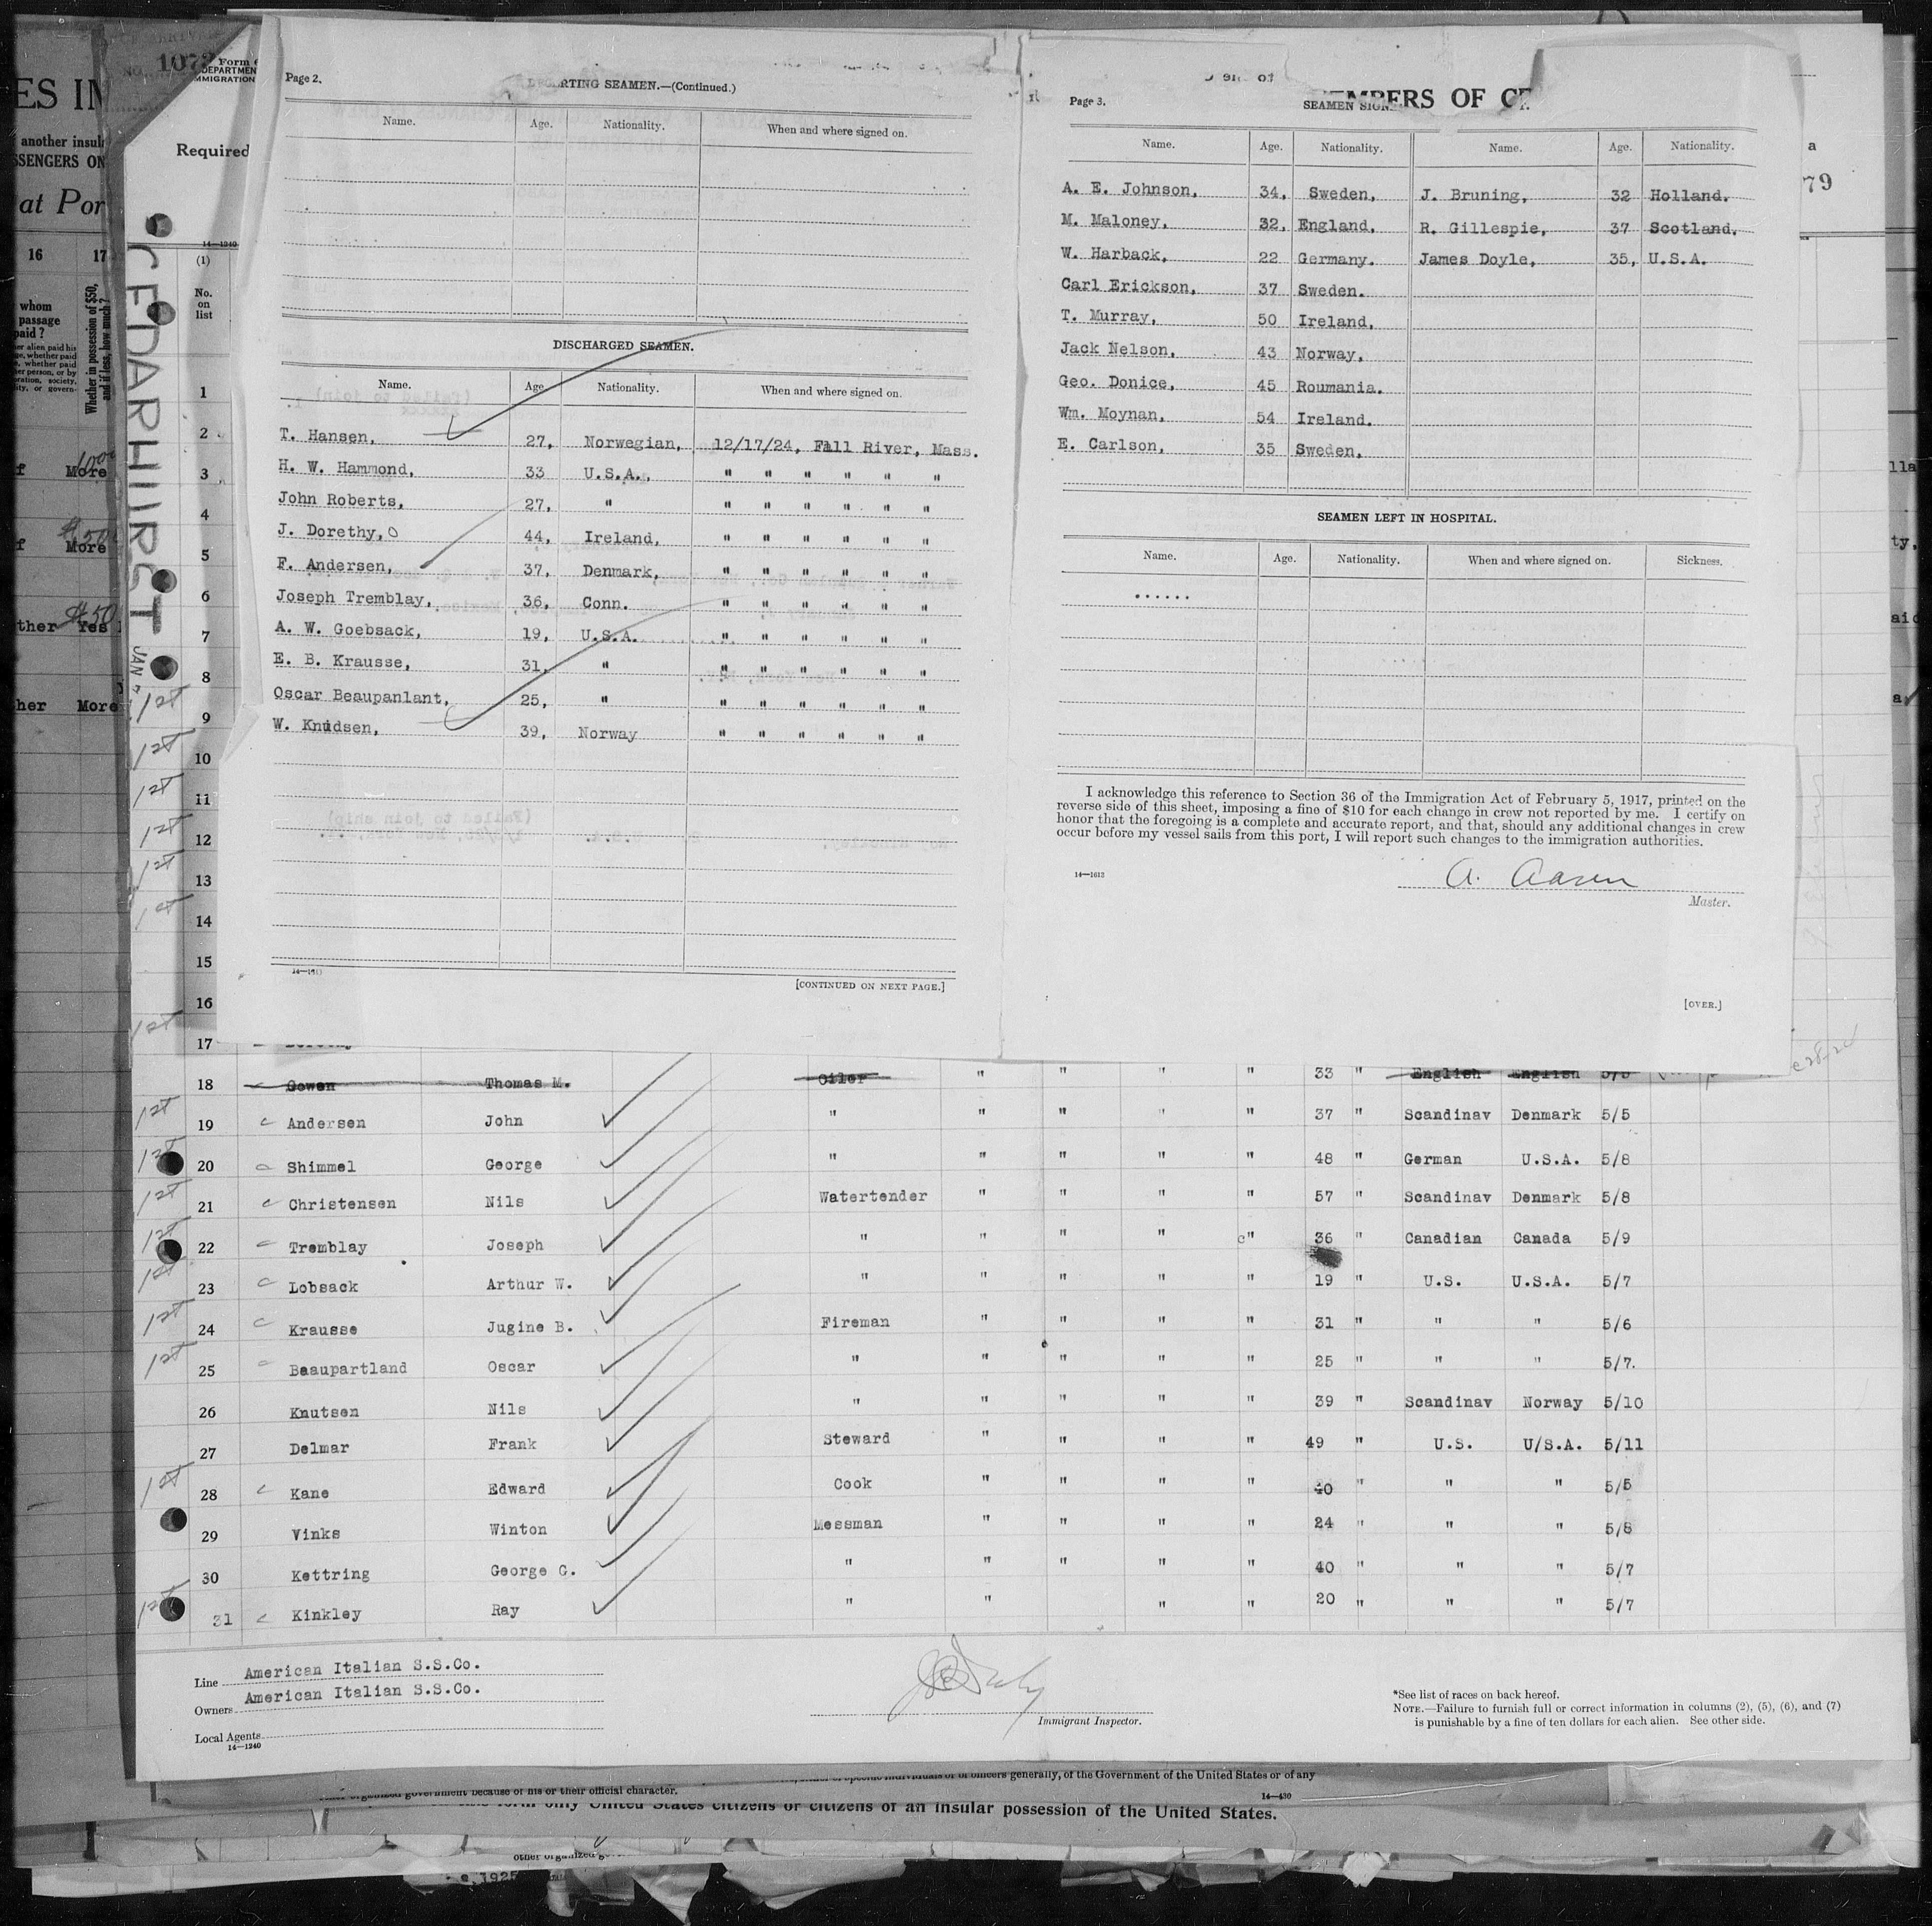 1073
Form
DEPARTMENT
IMMIGRATION
Required
14—1240
ES IN
another insul
SSENGERS ON
at Por
16 17
whom
passage
paid?
Whether in possession of $50,
and if less, how much?
More
$50
More
ther Yes
$50
her More
CEDARHURST
JAN
(1)
No.
on
list
1
2
3
4
5
6
7
8
9
10
11
12
13
14
15
16
17
Page 2.
RTING SEAMEN.—(Continued.)
Name. Age. Nationality. When and where signed on.
DISCHARGED SEAMEN.
Name. Age Nationality. When and where signed on.
T. Hansen, 27, Norwegian, 12/17/24, Fall River, Mass.
H. W. Hammond, 33 U.S.A., " " " " " "
John Roberts, 27, " " " " " " "
J. Dorethy, 44, Ireland, " " " " " "
F. Andersen, 37, Denmark, " " " " " "
Joseph Tremblay, 36, Conn. " " " " " "
A. W. Goebsack, 19, U.S.A. " " " " " "
E. B. Krausse, 31, " " " " " " "
Oscar Beaupanlant, 25, " " " " " " "
W. Knudsen, 39, Norway " " " " " "
[CONTINUED ON NEXT PAGE.]
Page 3.
SEAMEN SIGN
MBERS OF CR
Name. Age. Nationality. Name. Age. Nationality.
A. E. Johnson, 34, Sweden, J. Bruning, 32 Holland.
M. Maloney, 32, England, R. Gillespie, 37 Scotland.
W. Harback, 22 Germany. James Doyle, 35, U.S.A.
Carl Erickson, 37 Sweden.
T. Murray, 50 Ireland,
Jack Nelson, 43 Norway,
Geo. Donice, 45 Roumania.
Wm. Moynan, 54 Ireland.
E. Carlson, 35 Sweden,
SEAMEN LEFT IN HOSPITAL.
Name. Age. Nationality. When and where signed on. Sickness.
......
I acknowledge this reference to Section 36 of the Immigration Act of February 5, 1917, printed on the
reverse side of this sheet, imposing a fine of $10 for each change in crew not reported by me. I certify on
honor that the foregoing is a complete and accurate report, and that, should any additional changes in crew
occur before my vessel sails from this port, I will report such changes to the immigration authorities.
14—1612
A. Aasen
Master.
[OVER.]
a
79
18 Gowen Thomas M. Oiler " " " " 33 " English English 5/5
1st 19 Andersen John " " " " " 37 " Scandinav Denmark 5/5
1st 20 Shimmel George " " " " " 48 " German U.S.A. 5/8
1st 21 Christensen Nils Watertender " " " " 57 " Scandinav Denmark 5/8
1st 22 Tremblay Joseph " " " " " 36 " Canadian Canada 5/9
1st 23 Lobsack Arthur W. " " " " " 19 " U.S. U.S.A. 5/7
1st 24 Krausse Jugine B. Fireman " " " " 31 " " " 5/6
1st 25 Beaupartland Oscar " " " " " 25 " " " 5/7.
26 Knutsen Nils " " " " " 39 " Scandinav Norway 5/10
27 Delmar Frank Steward " " " " 49 " U.S. U/S.A. 5/11
1st 28 Kane Edward Cook " " " " 40 " " " 5/5
29 Vinks Winton Messman " " " " 24 " " " 5/8
30 Kettring George C. " " " " " 40 " " " 5/7
1st 31 Kinkley Ray " " " " 20 " " " 5/7
Line American Italian S.S.Co.
Owners American Italian S.S.Co.
Local Agents
14—1240
Immigrant Inspector.
*See list of races on back hereof.
NOTE.—Failure to furnish full or correct information in columns (2), (5), (6), and (7)
is punishable by a fine of ten dollars for each alien. See other side.
officers generally, of the Government of the United States or of any
government because of his or their official character.
14—430
form only United States citizens or citizens of an insular possession of the United States.